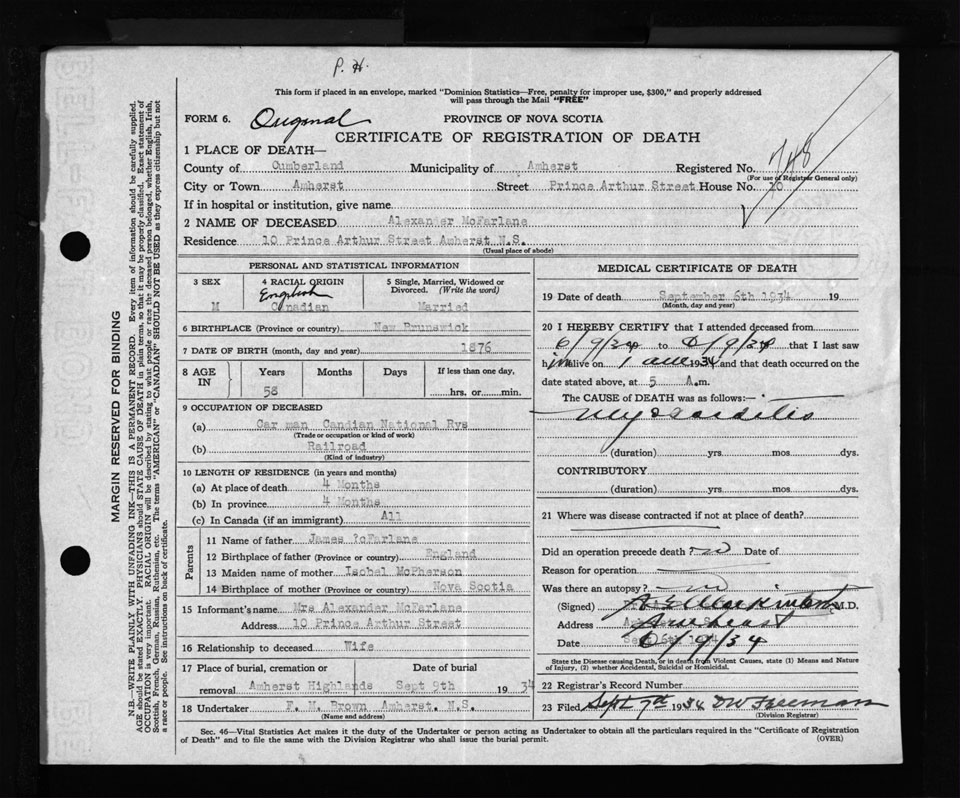 P. H.
This form if placed in an envelope, marked "Dominion Statistics—Free, penalty for improper use, $300," and properly addressed
will pass through the Mail "FREE"
FORM 6. Original PROVINCE OF NOVA SCOTIA
CERTIFICATE OF REGISTRATION OF DEATH
1 PLACE OF DEATH—
County of Cumberland Municipality of Amherst Registered No. 748
(For use of Registrar General only)
City or Town Amherst Street Prince Arthur Street House No. 10
If in hospital or institution, give name
2 NAME OF DECEASED Alexander McFarlane
Residence 10 Prince Arthur Street Amherst N.S.
(Usual place of abode)
PERSONAL AND STATISTICAL INFORMATION
3 SEX 4 RACIAL ORIGIN 5 Single, Married, Widowed or
Divorced. (Write the word)
English
M Canadian Married
6 BIRTHPLACE (Province or country) New Brunswick
7 DATE OF BIRTH (month, day and year) 1876
8 AGE IN Years Months Days If less than one day,
58 hrs. or min.
9 OCCUPATION OF DECEASED
(a) Car man Candian National Rys
(Trade or occupation or kind of work)
(b) Railroad
(Kind of industry)
10 LENGTH OF RESIDENCE (in years and months)
(a) At place of death 4 Months
(b) In province 4 Months
(c) In Canada (if an immigrant) All
Parents
11 Name of father James ?cFarlane
12 Birthplace of father (Province or country) England
13 Maiden name of mother Isobel McPherson
14 Birthplace of mother (Province or country) Nova Scotia
15 Informant's name Mrs Alexander McFarlane
Address 10 Prince Arthur Street
16 Relationship to deceased Wife
17 Place of burial, cremation or Date of burial
removal Amherst Highlands Sept 9th 1934
18 Undertaker F. M. Brown Amherst. N.S.
(Name and address)
MEDICAL CERTIFICATE OF DEATH
19 Date of death September 6th 1934 19
(Month, day and year)
20 I HEREBY CERTIFY that I attended deceased from
6/9/34 to 6/9/34 that I last saw
him alive on 1934 and that death occurred on the
date stated above, at 5 A.m.
The CAUSE of DEATH was as follows:—
Myocarditis
(duration) yrs. mos. dys.
CONTRIBUTORY
(duration) yrs. mos. dys.
21 Where was disease contracted if not at place of death?
Did an operation precede death? no Date of
Reason for operation
Was there an autopsy? no
(Signed) M.D.
Address Amherst
Date Sept 6th 1934 6/9/34
State the Disease causing Death, or in death from Violent Causes, state (1) Means and Nature
of Injury, (2) whether Accidental, Suicidal or Homicidal.
22 Registrar's Record Number
23 Filed Sept 7th 1934 DW Freeman
(Division Registrar)
Sec. 46—Vital Statistics Act makes it the duty of the Undertaker or person acting as Undertaker to obtain all the particulars required in the "Certificate of Registration
of Death" and to file the same with the Division Registrar who shall issue the burial permit. (OVER)
MARGIN RESERVED FOR BINDING
N.B.—WRITE PLAINLY WITH UNFADING INK—THIS IS A PERMANENT RECORD. Every item of information should be carefully supplied.
AGE should be stated EXACTLY. PHYSICIANS should STATE CAUSE OF DEATH in plain terms, so that it may be properly classified. Exact statement of
OCCUPATION is very important. RACIAL ORIGIN will be described by stating to what people or race the deceased person belonged, whether English, Irish,
Scottish, French, German, Russian, Ruthenian, etc. The terms "AMERICAN" or "CANADIAN" SHOULD NOT BE USED as they express citizenship but not
a race or people. See instructions on back of certificate.